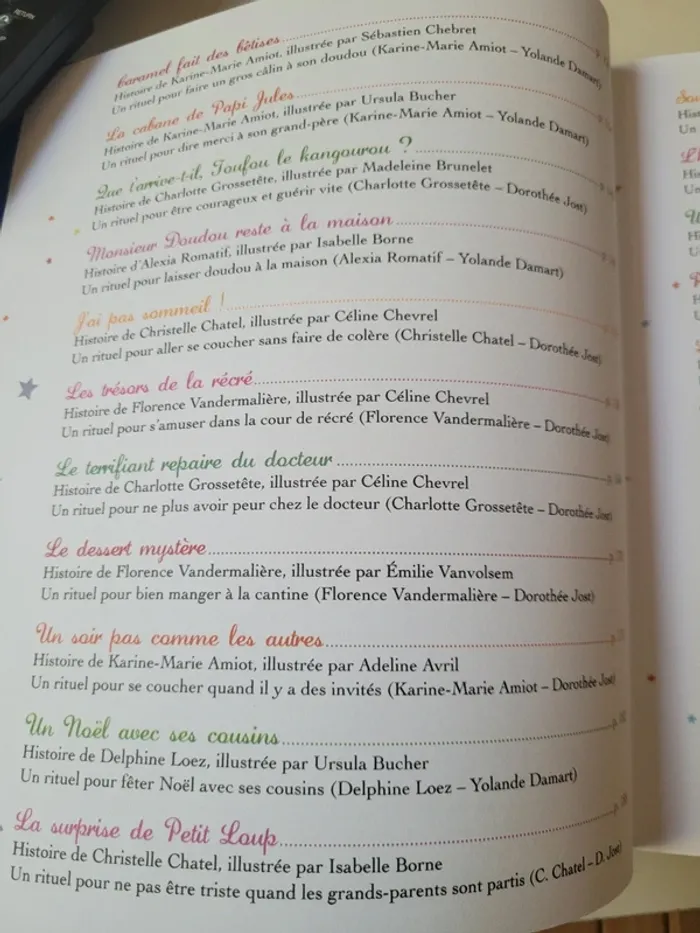 Caramel fait des bêtises
Histoire de Karine-Marie Amiot, illustrée par Sébastien Chebret
Un rituel pour faire un gros câlin à son doudou (Karine-Marie Amiot – Yolande Damart)
La cabane de Papi Jules
Histoire de Karine-Marie Amiot, illustrée par Ursula Bucher
Un rituel pour dire merci à son grand-père (Karine-Marie Amiot – Yolande Damart)
Que t'arrive-t-il, Toufou le kangourou ?
Histoire de Charlotte Grossetête, illustrée par Madeleine Brunelet
Un rituel pour être courageux et guérir vite (Charlotte Grossetête – Dorothée Jost)
Monsieur Doudou reste à la maison
Histoire d'Alexia Romatif, illustrée par Isabelle Borne
Un rituel pour laisser doudou à la maison (Alexia Romatif – Yolande Damart)
J'ai pas sommeil !
Histoire de Christelle Chatel, illustrée par Céline Chevrel
Un rituel pour aller se coucher sans faire de colère (Christelle Chatel – Dorothée Jost)
Les trésors de la récré
Histoire de Florence Vandermalière, illustrée par Céline Chevrel
Un rituel pour s'amuser dans la cour de récré (Florence Vandermalière – Dorothée Jost)
Le terrifiant repaire du docteur
Histoire de Charlotte Grossetête, illustrée par Céline Chevrel
Un rituel pour ne plus avoir peur chez le docteur (Charlotte Grossetête – Dorothée Jost)
Le dessert mystère
Histoire de Florence Vandermalière, illustrée par Émilie Vanvolsem
Un rituel pour bien manger à la cantine (Florence Vandermalière – Dorothée Jost)
Un soir pas comme les autres
Histoire de Karine-Marie Amiot, illustrée par Adeline Avril
Un rituel pour se coucher quand il y a des invités (Karine-Marie Amiot – Dorothée Jost)
Un Noël avec ses cousins
Histoire de Delphine Loez, illustrée par Ursula Bucher
Un rituel pour fêter Noël avec ses cousins (Delphine Loez – Yolande Damart)
La surprise de Petit Loup
Histoire de Christelle Chatel, illustrée par Isabelle Borne
Un rituel pour ne pas être triste quand les grands-parents sont partis (C. Chatel – D. Jost)